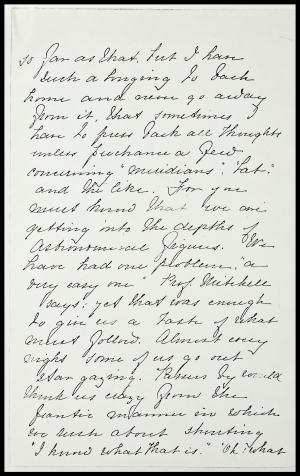 so far as that, but I have
such a longing to back
home and never go away
from it, that sometimes I
have to press back all thoughts
unless perchance a few
concerning "meridians", "Lat."
and the like. For you
must know that we are
getting into the depths of
Astronomical figures. We
have had one problem, "a
very easy one" Prof. Mitchell
says; yet that was enough
to give us a taste of what
must follow. Almost every
night some of us go out
star gazing. Passers by would
think us crazy from the
frantic manner in which
we rush about shouting
"I know what that is." "Oh! what